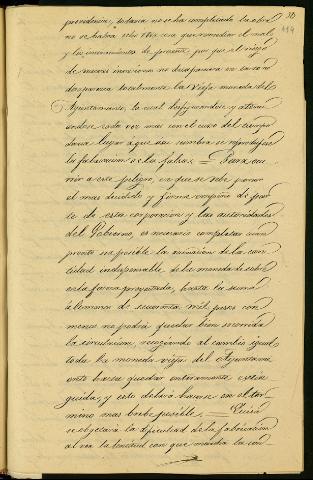 providencia, todavia no se ha completado la obra
no se habria sino una que remediar el mal
y los inconvenientes de presente, por que el riesgo
de nuevas invenciones no desaparecia en tanto no
desaparezca totalmente la vieja moneda del
Ayuntamiento, la cual desfigurandose y atenu-
andose cada vez mas con el curso del tiempo
daria lugar á que su sombra se reprodujese
la fabricacion de la falsa. = Para ocu-
rrir á este peligro, en que se debe poner
el mas decidido y firme empeño de par-
te de esta corporacion y las autoridades
del Gobierno, es necesario completar cuan
pronto sea posible la acuñacion de la can-
tidad indispensable de la moneda de cobre
en la forma proyectada, hasta la suma
á lo menos de sesenta mil pesos con
menos no podria quedar bien servida
la circulacion, recogiendo al cambio igual
toda la moneda vieja del Ayuntami-
ento hasta quedar enteramente estin-
guida, y esto debera hacerse en el tér-
mino mas brebe posible. = Quizá
se objetará la dificultad de la fabricacion
al ver la lentitud con que marcha la con-